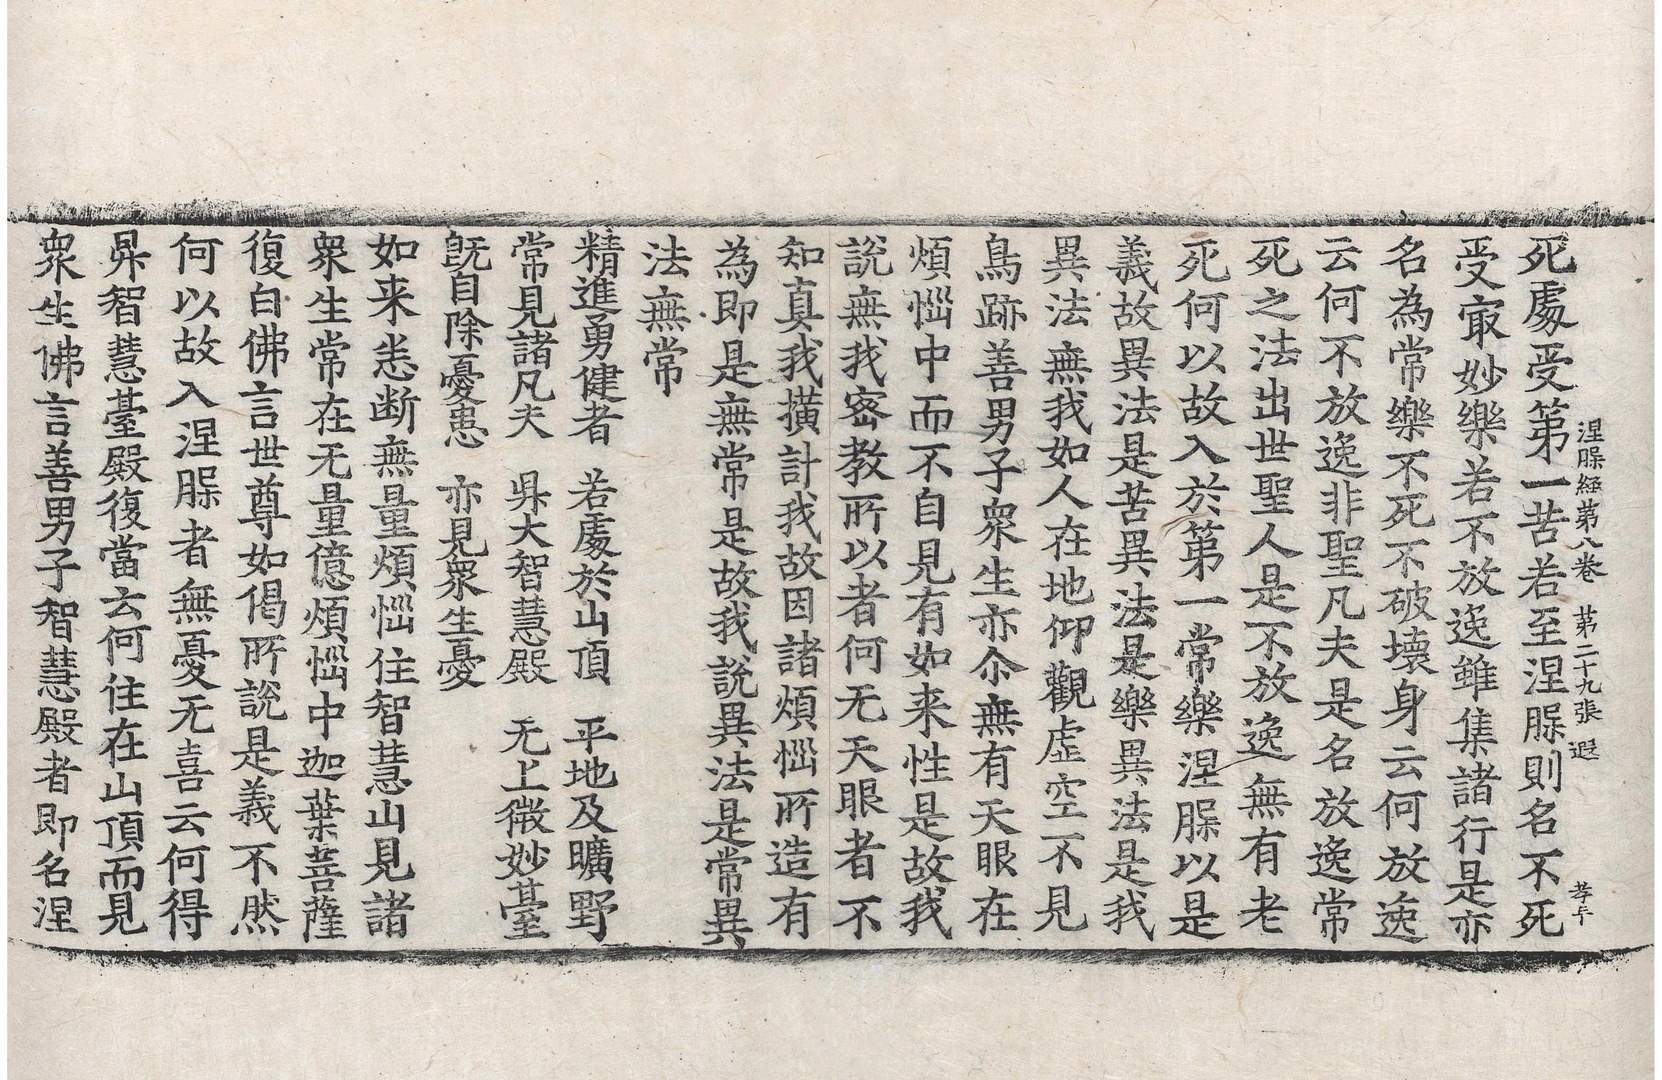 涅槃経苐八卷 苐二十九張 遐
死處受第一苦若至涅槃則名不死
受㝡妙樂若不放逸雖集諸行是亦
名為常樂不死不破壞身云何放逸
云何不放逸非聖凡夫是名放逸常
死之法出世聖人是不放逸無有老
死何以故入於第一常樂涅槃以是
義故異法是苦異法是樂異法是我
異法無我如人在地仰觀虛空不見
鳥跡善男子衆生亦尒無有天眼在
煩惱中而不自見有如来性是故我
說無我密教所以者何无天眼者不
知真我撗計我故因諸煩惱所造有
為即是無常是故我說異法是常異
法無常
精進勇健者 若處於山頂 平地及曠野
常見諸凡夫 昇大智慧殿 无上微妙臺
旣自除憂患 亦見衆生憂
如来悉断無量煩惱住智慧山見諸
衆生常在无量億煩惱中迦葉菩薩
復白佛言世尊如偈所說是義不然
何以故入涅槃者無憂无喜云何得
昇智慧臺殿復當云何住在山頂而見
衆生佛言善男子智慧殿者即名涅